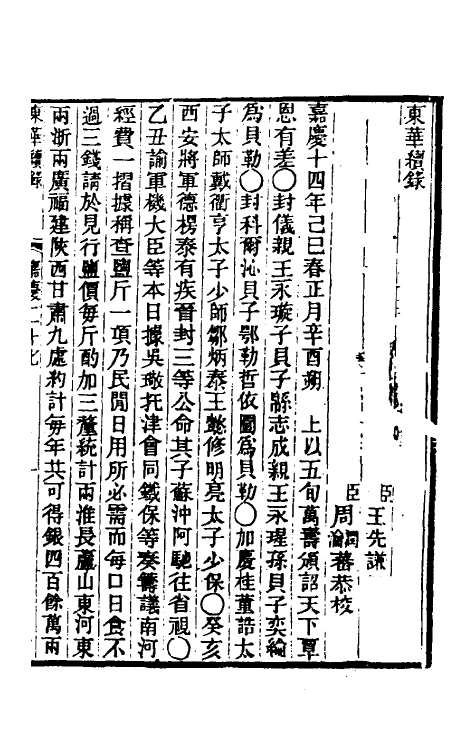 東華續錄
臣王先謙
臣周潤蕃
瀹蕃恭校
嘉慶十四年己巳春正月辛酉朔　上以五旬萬壽頒詔天下覃
恩有差〇封儀親王永璇子貝子緜志成親王永瑆孫貝子奕綸
爲貝勒〇封科爾沁貝子鄂勒哲依圖爲貝勒〇加慶桂董誥太
子太師戴衢亨太子少師鄒炳泰王懿修明亮太子少保〇癸亥
西安將軍德楞泰有疾晉封三等公命其子蘇沖阿馳往省視〇
乙丑諭軍機大臣等本日據吳璥托津會同鐵保等奏籌議南河
經費一摺據稱查鹽斤一項乃民間日用所必需而每口日食不
過三錢請於見行鹽價每斤酌加三釐統計兩淮長蘆山東河東
兩浙兩廣福建陝西甘肅九處約計每年共可得銀四百餘萬兩
東華續錄　嘉慶二十七